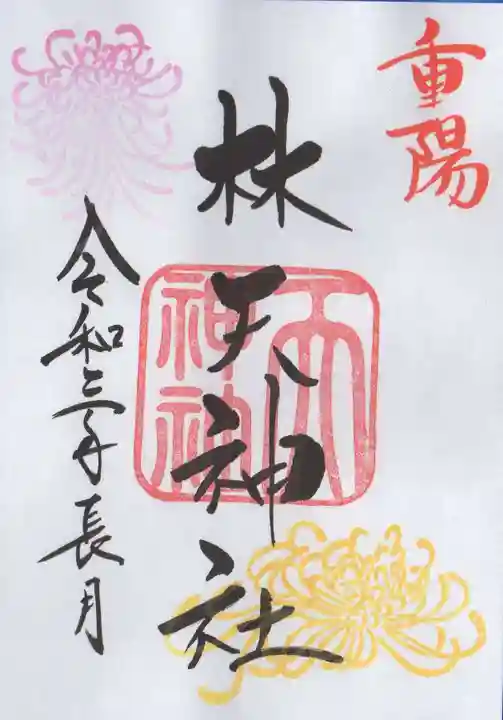 重陽
林天神社
天神社
令和三年長月